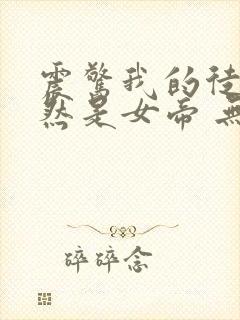 震驚我的徒
然是女帝 無
碎碎念